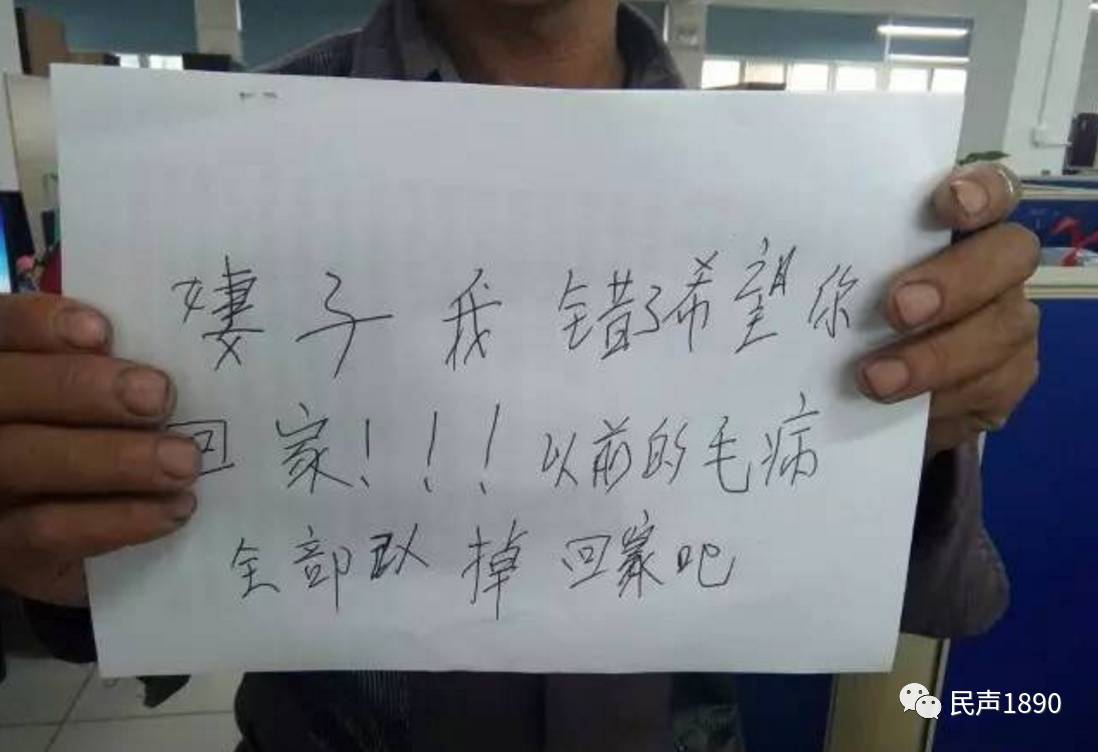 妻子我错了希望你
回家！！！以前的毛病
全部改掉回家吧
民声1890